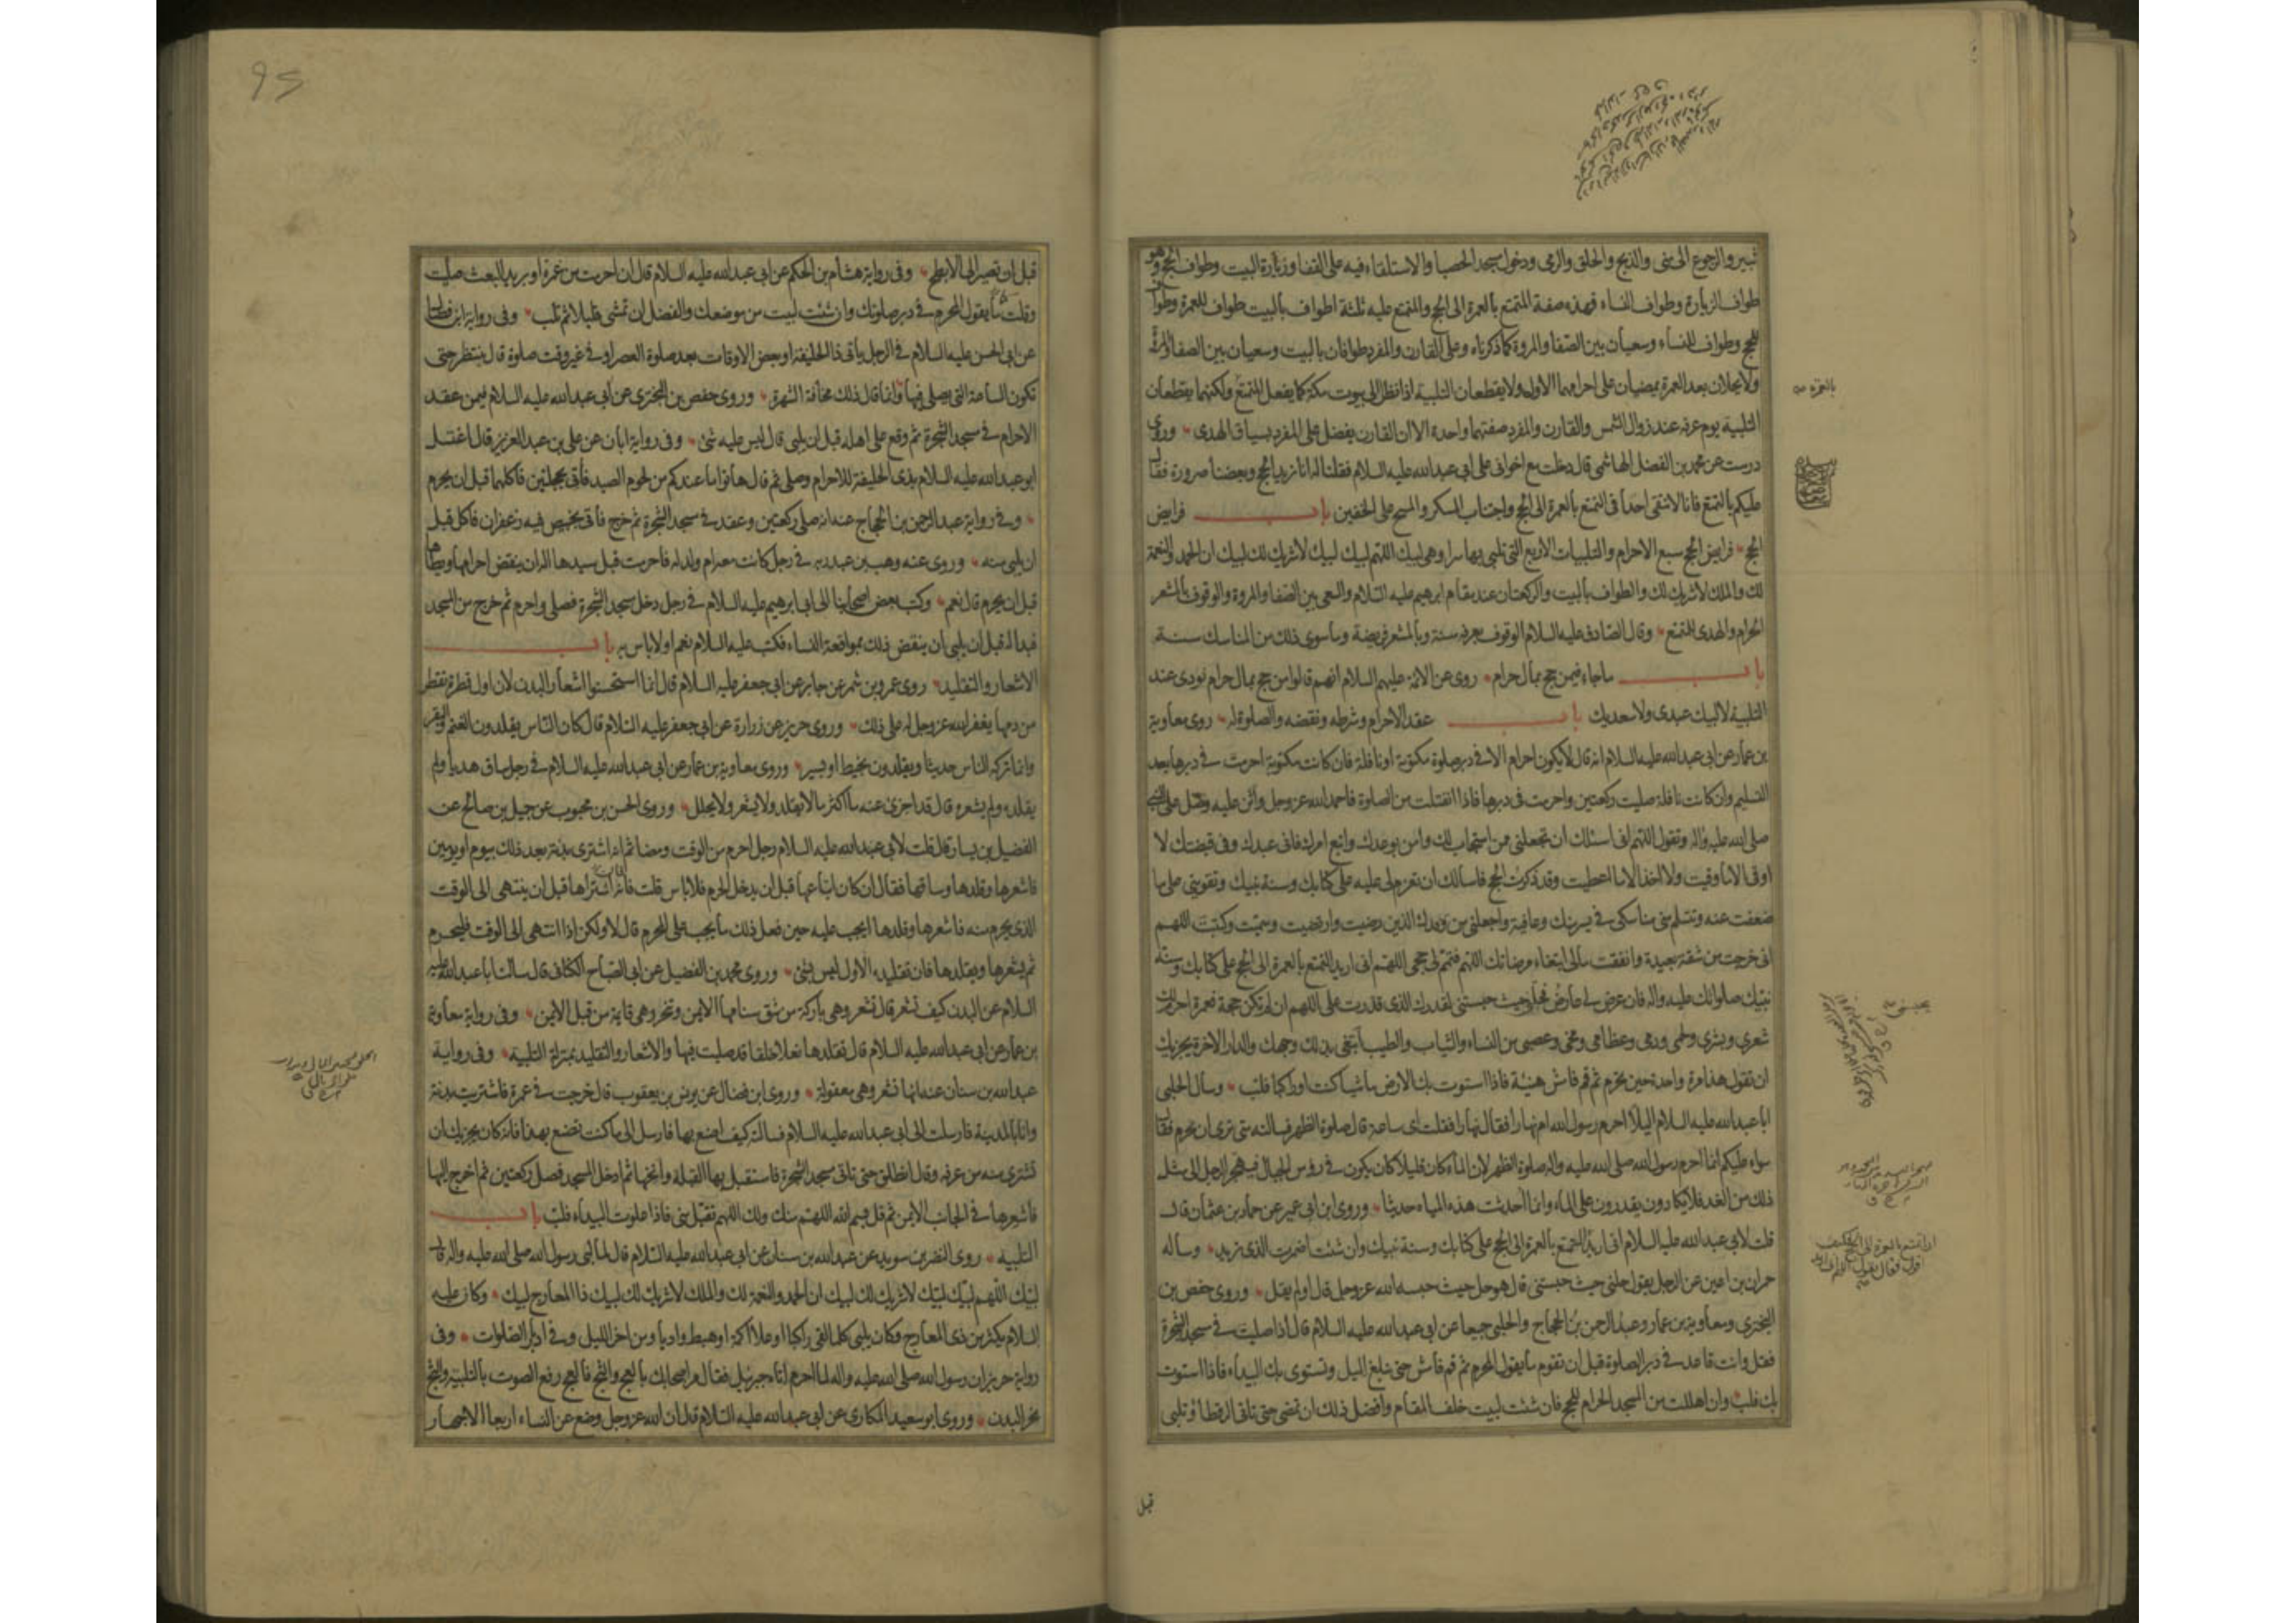 ثبير والرجوع الى منى والذبح والحلق والرمى ودخول مسجد الحصبا والاستلقاء فيه على القفا وزيارة البيت وطواف الحج وهو
طواف الزيارة وطواف النساء فهذه صفة المتمتع بالعمرة الى الحج والمتمتع عليه ثلثة اطواف بالبيت طواف للعمرة وطواف
للحج وطواف للنساء وسعيان بين الصفا والمروة كما ذكرناه وعلى القارن والمفرد طوافان بالبيت وسعيان بين الصفا والمروة
ولا يحلان بعد العمرة يمضيان على احرامهما الاول ولا يقطعان التلبية اذا نظرا الى بيوت مكة كما يفعل المتمتع ولكنهما يقطعان
التلبية يوم عرفة عند زوال الشمس والقارن والمفرد صفتهما واحدة الا ان القارن يفضل على المفرد بسياق الهدى وروى
درست عن محمد بن الفضل الهاشمى قال دخلت مع اخوانى على ابى عبدالله عليه السلام فقلنا له انا نريد الحج وبعضنا صرورة فقال
عليكم بالتمتع فانا لا نتقى احدا فى التمتع بالعمرة الى الحج واجتناب المسكر والمسح على الخفين باب فرايض
الحج فرايض الحج سبع الاحرام والتلبيات الاربع التى تلبى بها سرا وهى لبيك اللهم لبيك لبيك لا شريك لك لبيك ان الحمد والنعمة
لك والملك لا شريك لك والطواف بالبيت والركعتان عند مقام ابرهيم عليه السلام والسعى بين الصفا والمروة والوقوف بالمشعر
الحرام والهدى للتمتع وقال الصادق عليه السلام الوقوف بعرفة سنة وبالمشعر فريضة وما سوى ذلك من المناسك سنة
باب ماجاء فيمن حج بمال حرام روى عن الائمة عليهم السلام انهم قالوا من حج بمال حرام نودى عند
التلبية لا لبيك عبدى ولا سعديك باب عقد الاحرام وشرطه ونقضه والصلوة له روى معاوية
بن عمار عن ابى عبدالله عليه السلام انه قال لا يكون احرام الا فى دبر صلوة مكتوبة او نافلة فان كانت مكتوبة احرمت فى دبرها بعد
التسليم وان كانت نافلة صليت ركعتين واحرمت فى دبرها فاذا انفتلت من الصلوة فاحمد الله عز وجل واثن عليه وصل على النبى
صلى الله عليه واله وتقول اللهم انى اسئلك ان تجعلنى ممن استجاب لك وامن بوعدك واتبع امرك فانى عبدك وفى قبضتك لا
اوقى الا ما وقيت ولا اخذ الا ما اعطيت وقد ذكرت الحج فاسالك ان تعزم لى عليه على كتابك وسنة نبيك وتقوينى على ما
ضعفت عنه وتتسلم منى مناسكى فى يسر منك وعافية واجعلنى من وفدك الذين رضيت وارتضيت وسميت وكتبت اللهم
انى خرجت من شقة بعيدة وانفقت مالى ابتغاء مرضاتك اللهم فتمم لى حجى اللهم انى اريد التمتع بالعمرة الى الحج على كتابك وسنة
نبيك صلواتك عليه واله فان عرض لى عارض فحلنى حيث حبستنى لقدرك الذى قدرت على اللهم ان لم تكن حجة فعمرة احرم لك
شعرى وبشرى ولحمى ودمى وعظامى ومخى وعصبى من النساء والثياب والطيب ابتغى بذلك وجهك والدار الاخرة يجزيك
ان تقول هذا مرة واحدة حين تحرم ثم قم فامش هنيئة فاذا استوت بك الارض ماشيا كنت او راكبا فلب وسأل الحلبى
ابا عبدالله عليه السلام اليلا احرم رسول الله ام نهارا فقال نهارا فقلت اى ساعة قال صلوة الظهر فسالته متى ترى ان نحرم فقال
سواء عليكم انما احرم رسول الله صلى الله عليه واله صلوة الظهر لان الماء كان قليلا كان يكون فى رؤس الجبال فيهجر الرجل الى مثل
ذلك من الغد فلا يكادون يقدرون على الماء وانما احدثت هذه المياه حديثا وروى ابن ابى عمير عن حماد بن عثمان قال
قلت لابى عبدالله عليه السلام انى اريد التمتع بالعمرة الى الحج على كتابك وسنة نبيك وان شئت اضمرت الذى تريد وساله
حمران بن اعين عن الرجل يقول حلنى حيث حبستنى قال هو حل حيث حبسه الله عز وجل قال اولم يقل وروى حفص بن
البخترى ومعاوية بن عمار وعبد الرحمن بن الحجاج والحلبى جميعا عن ابى عبدالله عليه السلام قال اذا صليت فى مسجد الشجرة
فقل وانت قاعد فى دبر الصلوة قبل ان تقوم ما يقول المحرم ثم قم فامش حتى تبلغ الميل وتستوى بك البيداء فاذا استوت
بك فلب وان اهللت من المسجد الحرام للحج فان شئت لبيت خلف المقام وافضل ذلك ان تمضى حتى تاتى الرقطا وتلبى
قبل
بالعمرة
95
قبل ان تصير الى الابطح وفى رواية هشام بن الحكم عن ابى عبدالله عليه السلام قال ان احرمت من غمرة او بريد البعث صليت
وقلت ما يقول المحرم فى دبر صلوتك وان شئت لبيت من موضعك والفضل ان تمشى قليلا ثم تلب وفى رواية ابن فضال
عن ابى الحسن عليه السلام فى الرجل ياتى ذا الحليفة او بعض الاوقات بعد صلوة العصر او فى غير وقت صلوة قال ينتظر حتى
تكون الساعة التى يصلى فيها وانما قال ذلك مخافة الشهرة وروى حفص بن البخترى عن ابى عبدالله عليه السلام فيمن عقد
الاحرام فى مسجد الشجرة ثم وقع على اهله قبل ان يلبى قال ليس عليه شئ وفى رواية ابان عن على بن عبد العزيز قال اغتسل
ابو عبدالله عليه السلام بذى الحليفة للاحرام وصلى ثم قال هاتوا ما عندكم من لحوم الصيد فأتى بحجلتين فاكلهما قبل ان يحرم
وفى رواية عبد الرحمن بن الحجاج عنه انه صلى ركعتين وعقد فى مسجد الشجرة ثم خرج فاتى بخبيص فيه زعفران فاكل قبل
ان يلبى منه وروى عنه وهب بن عبد ربه فى رجل كانت معه ام ولد له فاحرمت قبل سيدها اله ان ينقض احرامها ويطأها
قبل ان يحرم قال نعم وكتب بعض اصحابنا الى ابى ابرهيم عليه السلام فى رجل دخل مسجد الشجرة فصلى واحرم ثم خرج من المسجد
فبدا له قبل ان يلبى ان ينقض ذلك بمواقعة النساء فكتب عليه السلام نعم او لا باس به باب
الاشعار والتقليد روى عمرو بن شمر عن جابر عن ابى جعفر عليه السلام قال انما استحسنوا اشعار البدن لان اول قطرة تقطر
من دمها يغفر الله عز وجل له على ذلك وروى حريز عن زرارة عن ابى جعفر عليه السلام قال كان الناس يقلدون الغنم والبقر
وانما تركه الناس حديثا ويقلدون بخيط او بسير وروى معاوية بن عمار عن ابى عبدالله عليه السلام فى رجل ساق هديا ولم
يقلده ولم يشعره قال قد اجزى عنه ما اكثر ما لا يقلد ولا يشعر ولا يجلل وروى الحسن بن محبوب عن جميل بن صالح عن
الفضيل بن يسار قال قلت لابى عبدالله عليه السلام رجل احرم من الوقت ومضا ثم انه اشترى بدنة بعد ذلك بيوم او يومين
فاشعرها وقلدها وساقها فقال ان كان ابتاعها قبل ان يدخل الحرم فلا باس قلت فانه اشتراها قبل ان ينتهى الى الوقت
الذى يحرم منه فاشعرها وقلدها ايجب عليه حين فعل ذلك ما يجب على المحرم قال لا ولكن اذا انتهى الى الوقت فليحرم
ثم يشعرها ويقلدها فان تقليده الاول ليس بشئ وروى محمد بن الفضيل عن ابى الصباح الكنانى قال سالت ابا عبدالله عليه
السلام عن البدن كيف تشعر قال تشعر وهى باركة من شق سنامها الايمن وتنحر وهى قايمة من قبل الايمن وفى رواية معاوية
بن عمار عن ابى عبدالله عليه السلام قال تقلدها نعلا خلقا قد صليت فيها والاشعار والتقليد بمنزلة التلبية وفى رواية
عبدالله بن سنان عنه انها تشعر وهى معقولة وروى ابن فضال عن يونس بن يعقوب قال خرجت فى عمرة فاشتريت بدنة
وانا بالمدينة فارسلت الى ابى عبدالله عليه السلام فسالته كيف اصنع بها فارسل الى ما كنت تصنع بهذا فانه كان يجزيك ان
تشترى منه من عرفة وقال انطلق حتى تاتى مسجد الشجرة فاستقبل بها القبلة وانخها ثم ادخل المسجد فصل ركعتين ثم اخرج اليها
فاشعرها فى الجانب الايمن ثم قل بسم الله اللهم منك ولك اللهم تقبل منى فاذا علوت البيداء فلب باب
التلبية روى النضر بن سويد عن عبدالله بن سنان عن ابى عبدالله عليه السلام قال لما لبى رسول الله صلى الله عليه واله قال
لبيك اللهم لبيك لبيك لا شريك لك لبيك ان الحمد والنعمة لك والملك لا شريك لك لبيك ذا المعارج لبيك وكان عليه
السلام يكثر من ذى المعارج وكان يلبى كلما لقى راكبا او علا اكمة او هبط واديا ومن اخر الليل وفى ادبار الصلوات وفى
رواية حريز ان رسول الله صلى الله عليه واله لما احرم اتاه جبرئيل فقال مر اصحابك بالعج والثج فالعج رفع الصوت بالتلبية والثج
نحر البدن وروى ابو سعيد المكارى عن ابى عبدالله عليه السلام قال ان الله عز وجل وضع عن النساء اربعا الاجهار